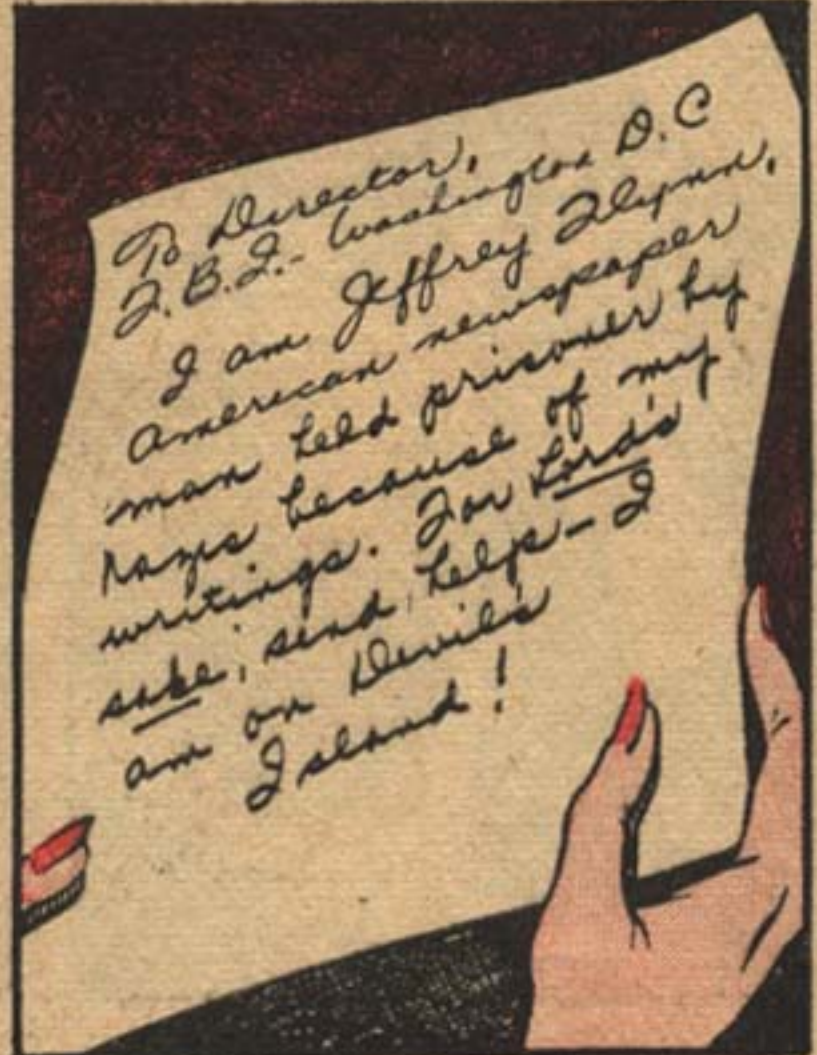 To Director,
F.B.I.- Washington D.C
I am Jeffrey Flynn,
American newspaper
man held prisoner by
Nazis because of my
writings. For Lord's
sake, send help- I
am on Devil's
Island!